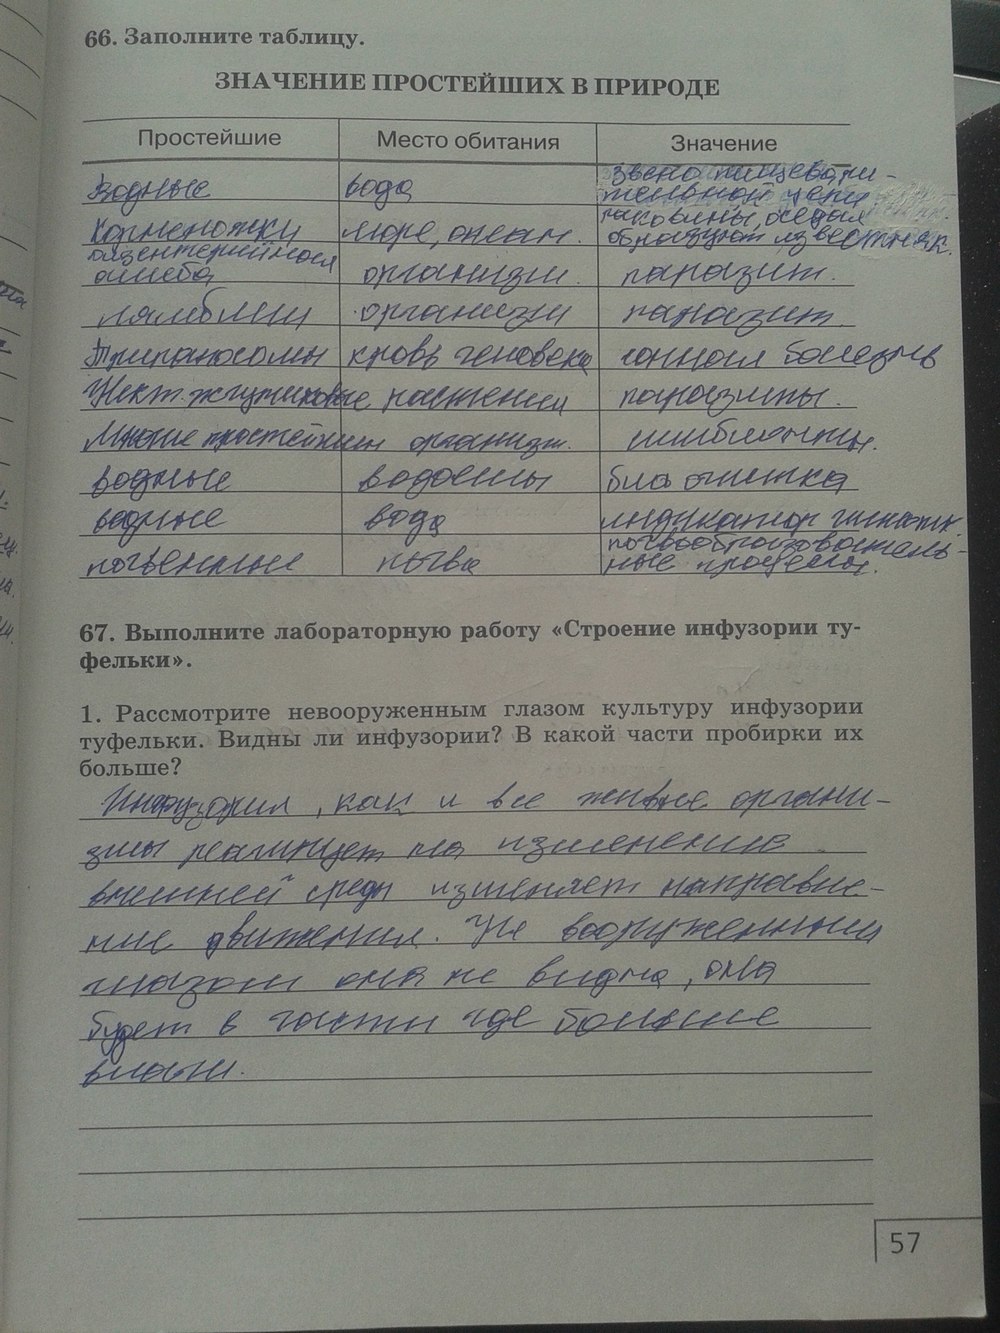 66. Заполните таблицу.
ЗНАЧЕНИЕ ПРОСТЕЙШИХ В ПРИРОДЕ
Простейшие Место обитания Значение
водные вода звено пищевари-
тельной цепи
корненожки море, океан. раковины, оседая
образуют известняк.
дизентерийная
амеба организм. паразит.
лямблии организм паразит.
Трипаносомы кровь человека сонная болезнь
Нект. жгутиковые растения паразиты.
Многие простейшие организм. симбионты.
водные водоемы био очистка
водные вода индикатор чистоты
почвенные почва почвообразователь-
ные процессы.
67. Выполните лабораторную работу «Строение инфузории ту-
фельки».
1. Рассмотрите невооруженным глазом культуру инфузории
туфельки. Видны ли инфузории? В какой части пробирки их
больше?
Инфузория, как и все живые органи-
змы реагирует на изменению
внешней среды изменяет направле-
ние движения. Не вооруженным
глазом она не видна, она
будет в части где больше
влаги.
57